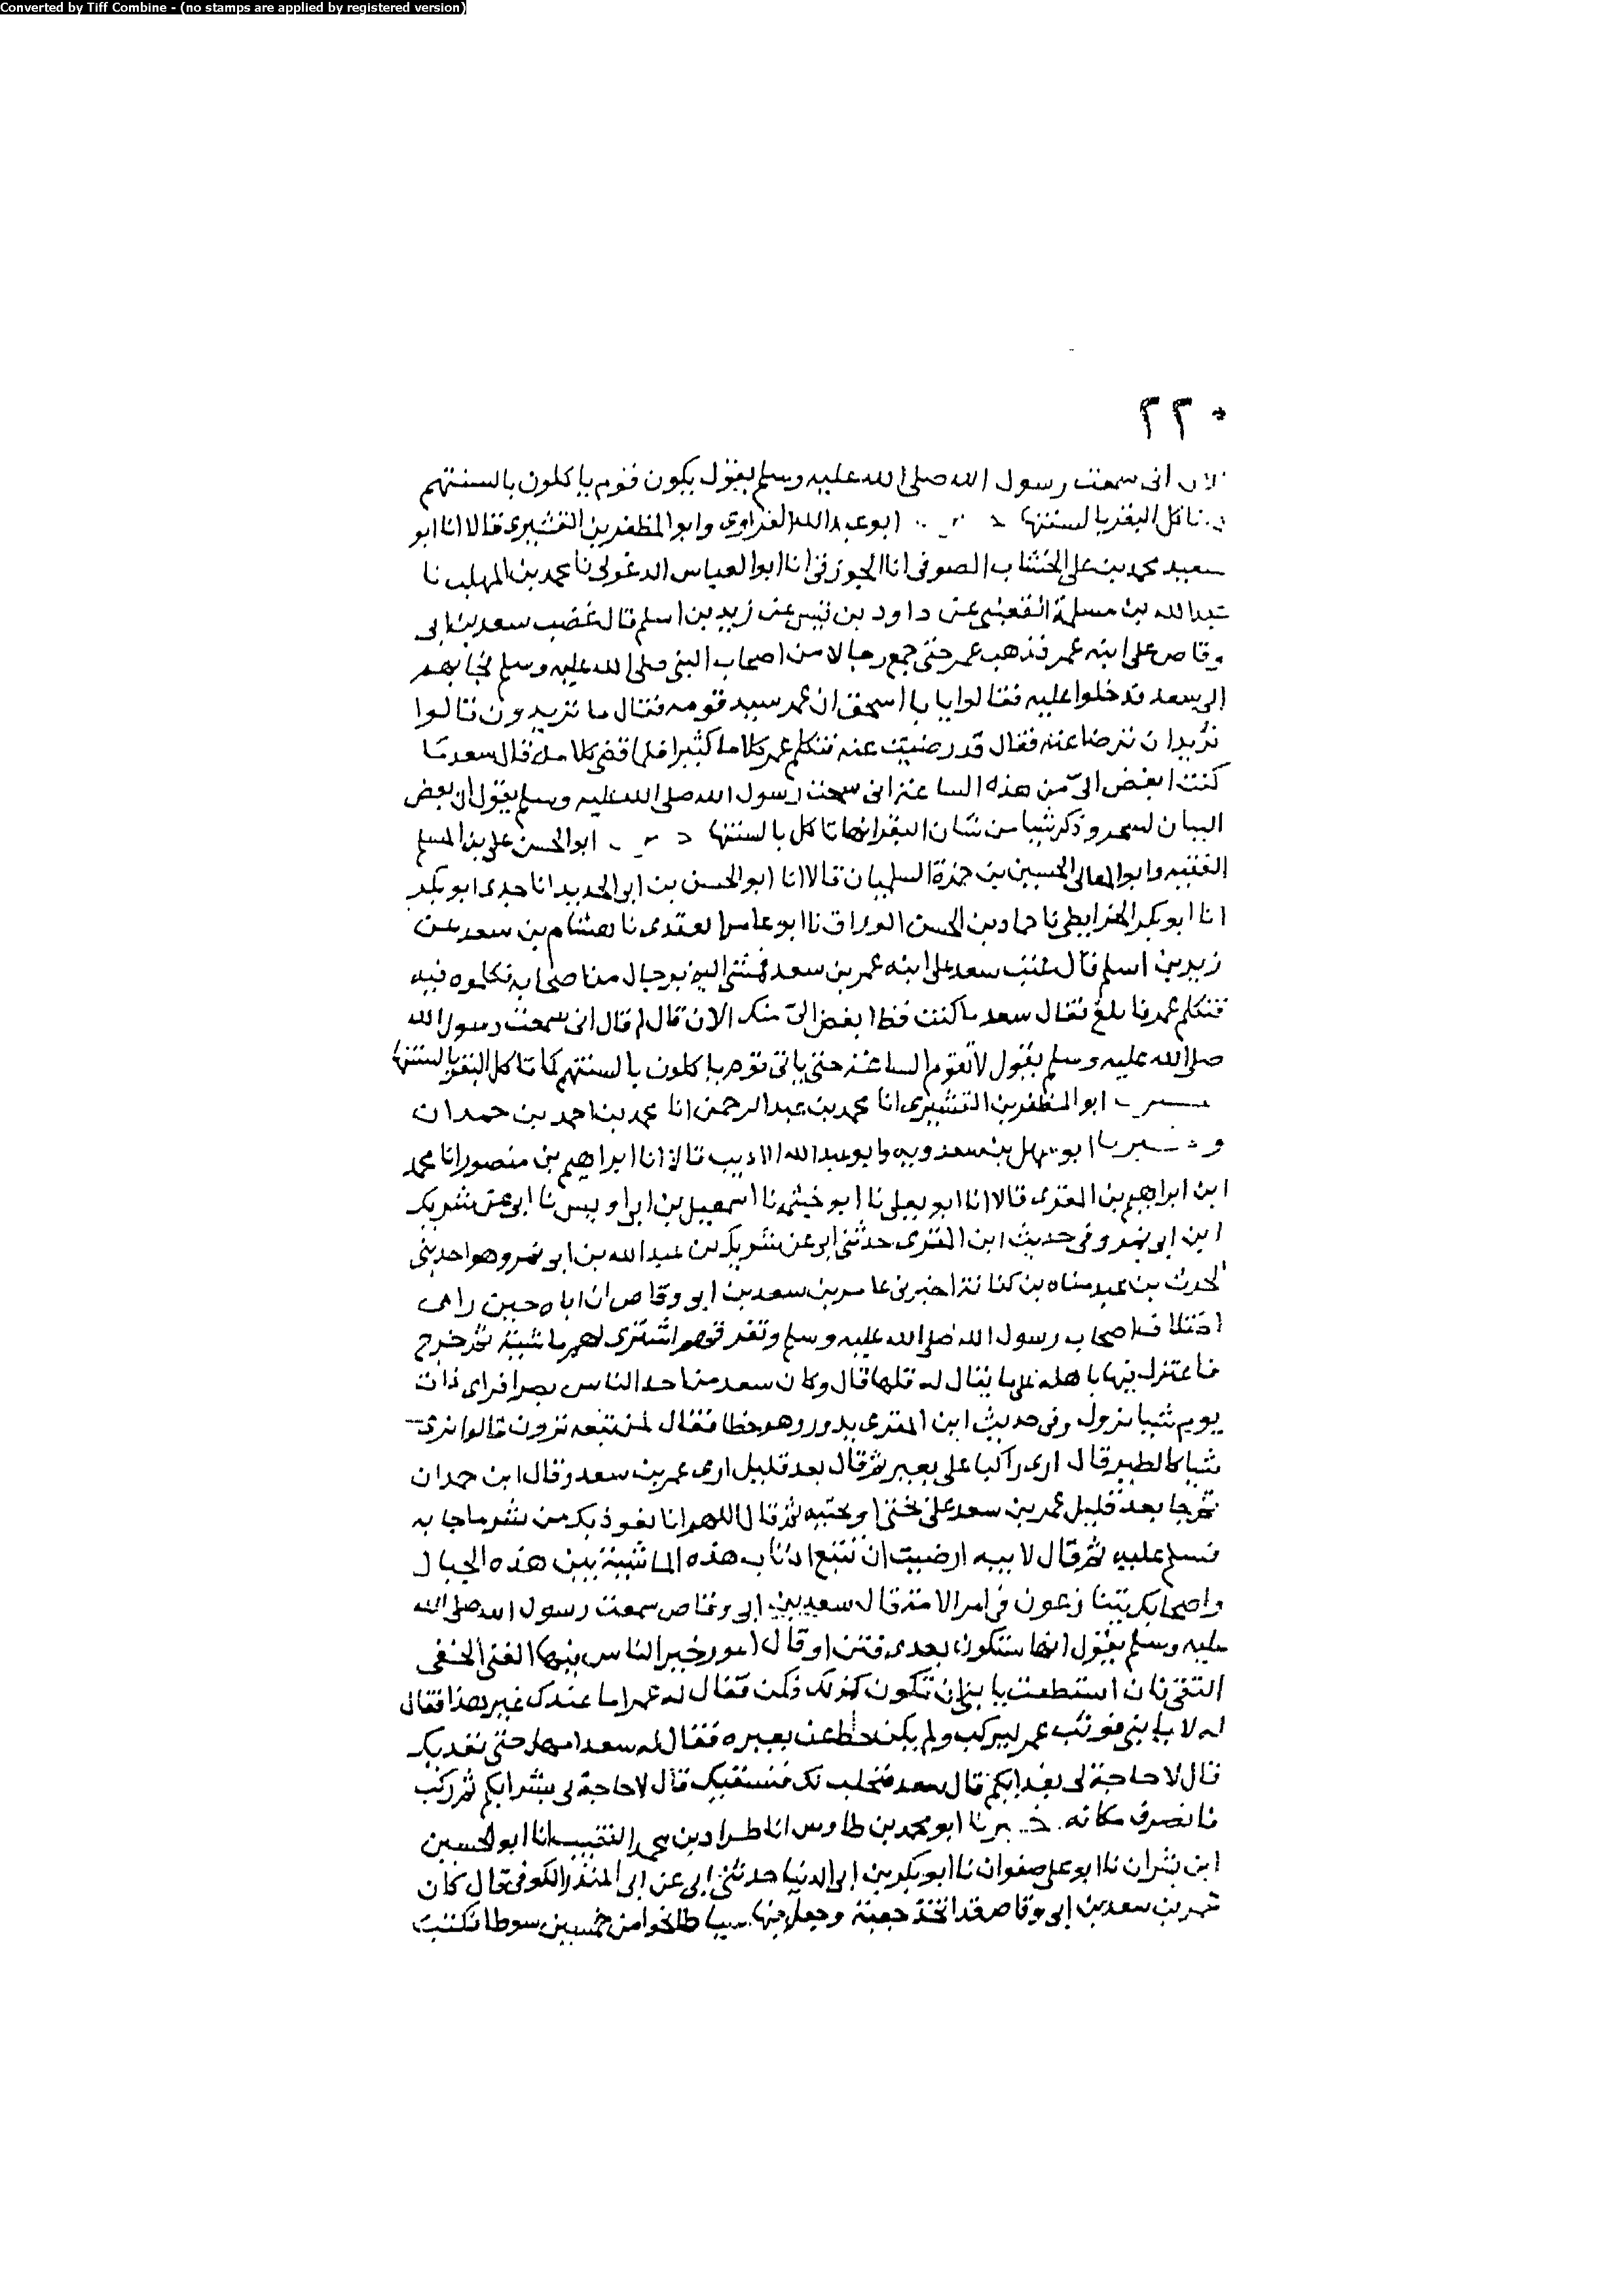 Converted by Tiff Combine - (no stamps are applied by registered version)
٢٢٠
الان انى سمعت رسول الله صلى الله عليه وسلم يقول يكون قوم ياكلون بالسنتهم
تاكل البقر بالسنتها ابو عبد الله الفراوى وابو المظفر بن القشيرى قالا انا ابو
سعيد محمد بن على الخشاب الصوفى انا الجوزقى انا ابو العباس الدغولى نا محمد بن المهلب نا
عبد الله بن مسلمة القعنبى عن داود بن قيس عن زيد بن اسلم قال غضب سعد بن ابى
وقاص على ابنه عمر فذهب عمر حتى جمع رجالا من اصحاب النبى صلى الله عليه وسلم فجا بهم
الى سعد فدخلوا عليه فقالوا يابا اسحق ان عمر سيد قومه فقال ما تريدون قالوا
نريد ان ترضا عنه فقال قد رضيت عنه فتكلم عمر كلاما كثيرا فلما قضى كلامه قال سعد ما
كنت ابغض الىّ من هذه الساعة انى سمعت رسول الله صلى الله عليه وسلم يقول ان بعض
البيان لسحر وذكر شيا من شان البقر انها تاكل بالسنتها ابو الحسن على بن المسلم
الفقيه وابو المعالى الحسين بن حمزة السلميان قالا انا ابو الحسن بن ابى الحديد انا جدى ابو بكر
انا ابو بكر الخرايطى نا حماد بن الحسن الوراق نا ابو عامر العقدى نا هشام بن سعد عن
زيد بن اسلم قال عتب سعد على ابنه عمر بن سعد فمشى اليه برجال من اصحابه فكلموه فيه
فتكلم عمر فابلغ فقال سعد ما كنت قط ابغض الىّ منك الان قال لم قال انى سمعت رسول الله
صلى الله عليه وسلم يقول لا تقوم الساعة حتى ياتى قوم ياكلون بالسنتهم كما تاكل البقر بالسنتها
ابو المظفر بن القشيرى انا محمد بن عبد الرحمن انا محمد بن احمد بن حمدان
و ابو سهل بن سعدويه وابو عبد الله الاديب قالا انا ابراهيم بن منصور انا محمد
ابن ابراهيم بن المقرى قالا انا ابو يعلى نا ابو خيثمه نا اسمعيل بن ابى اويس نا ابى عن شريك
ابن ابى نمر وفى حديث ابن المقرى حدثنى ابى عن شريك بن عبد الله بن ابى نمر وهو احد بنى
الحرث بن عبد مناه بن كنانة اخبرنى عامر بن سعد بن ابى وقاص ان اباه حين راى
اختلاف اصحاب رسول الله صلى الله عليه وسلم وتفرقهم اشترى لهم ماشية ثم خرج
فاعتزل فيها باهله على ما يقال له قلها قال وكان سعد من احد الناس بصرا فراى ذات
يوم شيا يزول وفى حديث ابن المقرى يدور وهو خطا فقال لمن تبعه ترون قالوا نرى
شيا كالطير قال ارى راكبا على بعير ثم قال بعد قليل ارى عمر بن سعد وقال ابن حمدان
ثم جا بعد قليل عمر بن سعد على بختى او بختيه ثم قال اللهم انا نعوذ بك من شر ما جا به
فسلم عليه ثم قال لابيه ارضيت ان تتبع اذناب هذه الماشية بين هذه الجبال
واصحابك يتنازعون فى امر الامة قال سعد بن ابى وقاص سمعت رسول الله صلى الله
عليه وسلم يقول انها ستكون بعدى فتن او قال امور خير الناس فيها الغنى الخفى
التقى فان استطعت يا بنى ان تكون كذلك فكن فقال له عمر اما عندك غير هذا فقال
له لا يا بنى فوثب عمر ليركب ولم يكن حط عن بعيره فقال له سعد امهل حتى نغديك
قال لا حاجة لى بغدايكم قال سعد فنحلب لك فنسقيك قال لا حاجة لى بشرابكم ثم ركب
فانصرف مكانه. خبرنا ابو محمد بن طاوس انا طراد بن محمد النقيب انا ابو الحسين
ابن بشران نا ابو على صفوان نا ابو بكر بن ابى الدنيا حدثنى ابى عن ابى المنذر الكوفى قال كان
عمر بن سعد بن ابى وقاص قد اتخذ جعبة وجعل فيها سياطا نحوا من خمسين سوطا فكتب